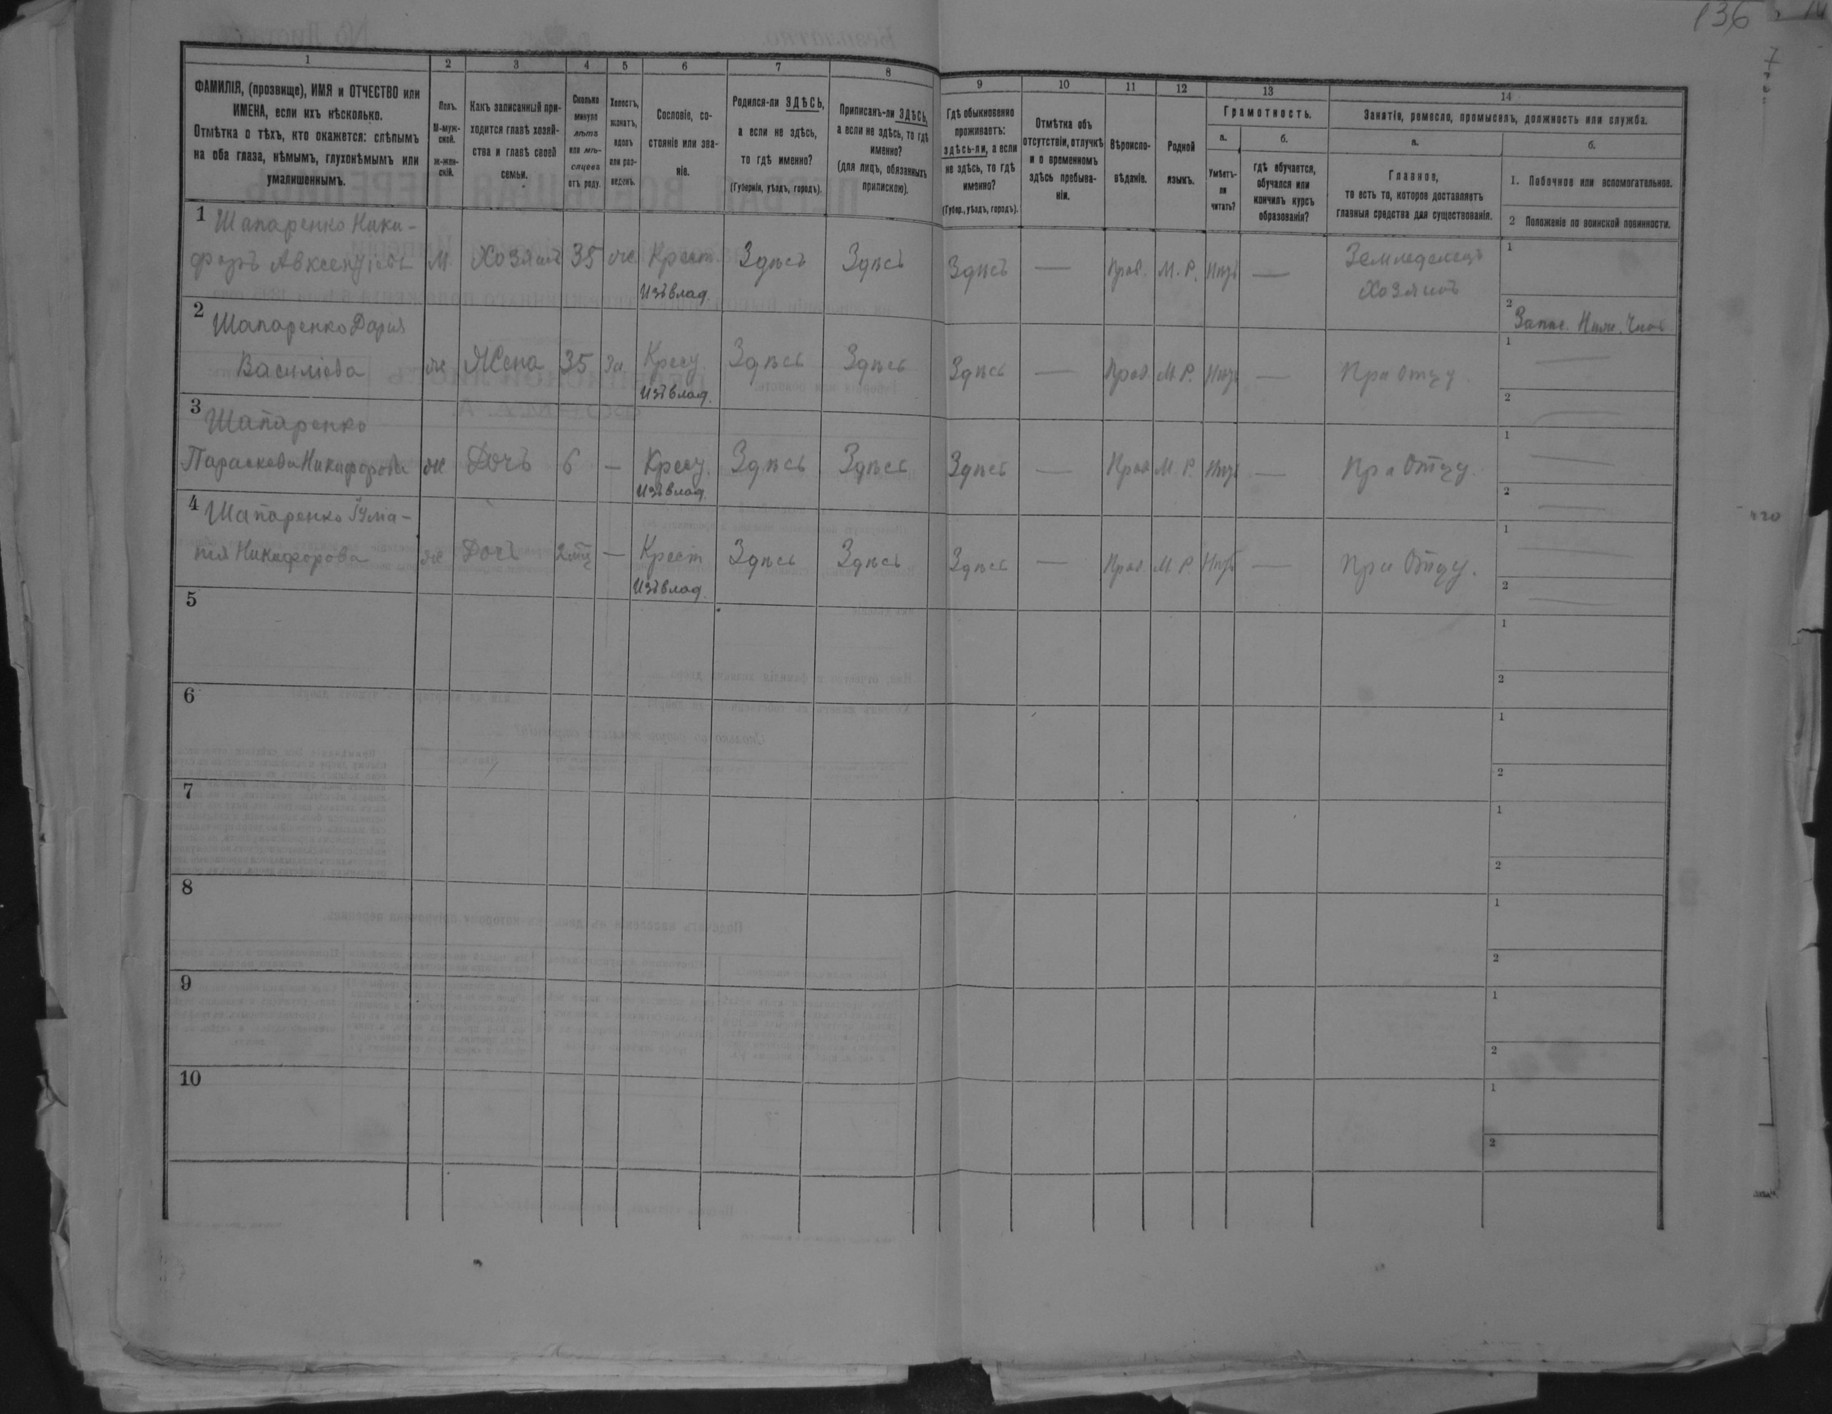 136
1 2 3 4 5 6 7 8 9 10 11 12 13 14
ФАМИЛІЯ, (прозвище), ИМЯ и ОТЧЕСТВО или
ИМЕНА, если ихъ нѣсколько.
Отмѣтка о тѣхъ, кто окажется: слѣпымъ
на оба глаза, нѣмымъ, глухонѣмымъ или
умалишеннымъ.
Полъ.
М-муж-
ской.
ж-жен-
скій.
Какъ записанный при-
ходится главѣ хозяй-
ства и главѣ своей
семьи.
Сколько
минуло
лѣтъ
или мѣ-
сяцевъ
отъ роду.
Холостъ,
женатъ,
вдовъ
или раз-
веденъ.
Сословіе, со-
стояніе или зва-
ніе.
Родился-ли ЗДѢСЬ,
а если не здѣсь,
то гдѣ именно?
(Губернія, уѣздъ, городъ).
Приписанъ-ли ЗДѢСЬ,
а если не здѣсь, то гдѣ
именно?
(для лицъ, обязанныхъ
припискою).
Гдѣ обыкновенно
проживаетъ:
здѣсь-ли, а если
не здѣсь, то гдѣ
именно?
(Губер., уѣздъ, городъ).
Отмѣтка объ
отсутствіи, отлучкѣ
и о временномъ
здѣсь пребыва-
ніи.
Вѣроиспо-
вѣданіе.
Родной
языкъ.
Грамотность.
а.
Умѣетъ-
ли
читать?
б.
гдѣ обучается,
обучался или
кончилъ курсъ
образованія?
Занятіе, ремесло, промыселъ, должность или служба.
а.
Главное,
то есть то, которое доставляетъ
главныя средства для существованія.
б.
1. Побочное или вспомогательное.
2 Положеніе по воинской повинности.
1 Шапаренко Ники-
форъ М. Хозяинъ 35 же Крест. Здѣсь Здѣсь Здѣсь — Прав. М. Р. — Земледелецъ
Изъ влад. Хозяинъ
1
2 Запас. Ниж. Чинъ
2 Шапаренко Дарія
Василіева же Жена 35 За Крест Здѣсь Здѣсь Здѣсь — Прав М. Р. — При отцу.
Изъ влад.
1
2
3 Шапаренко
Параскева Никифорова же Дочь 6 — Крест. Здѣсь Здѣсь Здѣсь — Прав М. Р. — При Отцу.
Изъ влад.
1
2
4 Шапаренко
Никифорова же Дочь — Крест Здѣсь Здѣсь Здѣсь — Прав М Р. — При Отцу.
Изъ влад.
1
2
5
1
2
6
1
2
7
1
2
8
1
2
9
1
2
10
1
2